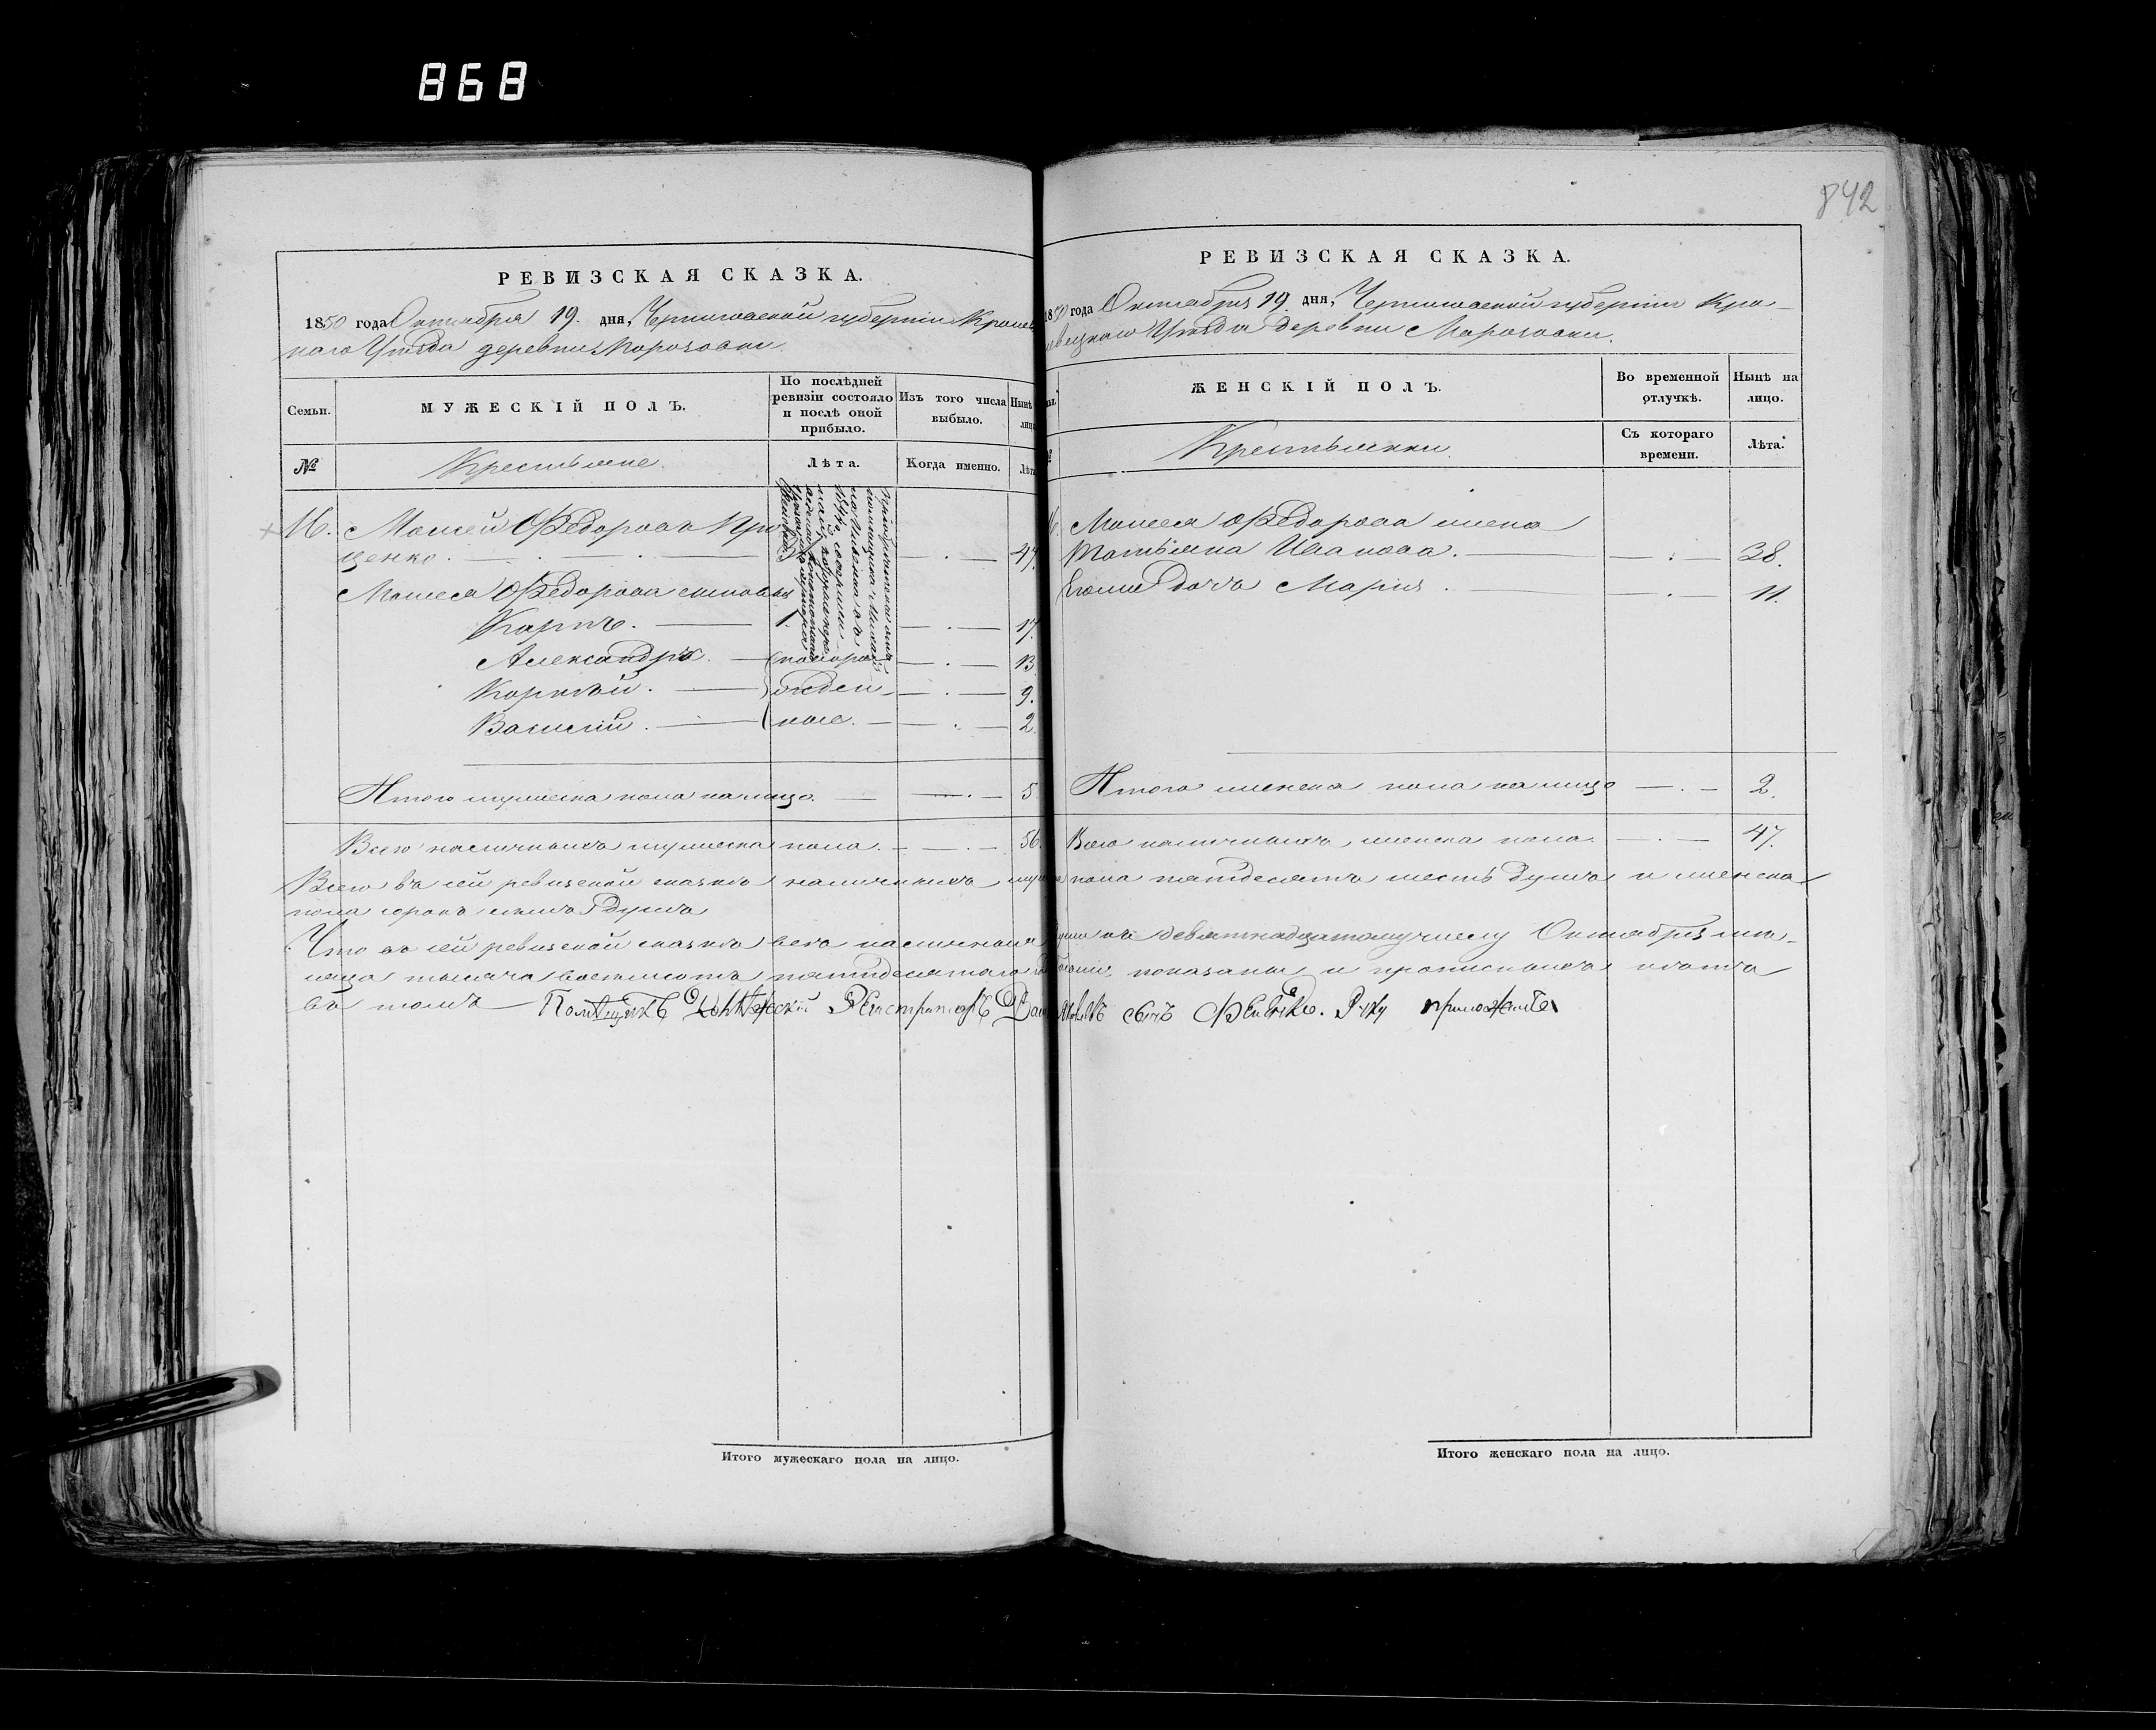 868
842
РЕВИЗСКАЯ СКАЗКА.
1850 года Октября 19. дня, Черниговской губернии Кролев
каго Уезда деревни Морозовки.
Семьи.
МУЖЕСКІЙ ПОЛЪ.
По послѣдней ревизіи состояло и послѣ оной прибыло.
Изъ того числа выбыло.
Нынѣ лицо
№
Крестьяне.
Лѣта.
Когда именно.
Лѣта
16. Моисей Ѳедоровъ Про
ценко. 47.
Моисея Ѳедорова сыновья
Карпъ. 1. 17.
Александръ. 13
Корнѣй. 9.
Василій. 2.
Итого мужеска пола на лицо. 5
Всего наличныхъ мужеска пола. 56.
РЕВИЗСКАЯ СКАЗКА.
1850 года Октября 19. дня, Черниговской губерніи Кро-
левецкаго Уѣзда деревни Морозовки.
ЖЕНСКІЙ ПОЛЪ.
Во временной отлучкѣ.
Нынѣ на лицо.
Крестьянки
Съ котораго времени.
Лѣта.
Моисея Ѳедорова жена
Татьяна Иванова. 38.
Его же дочь Марія 11.
Итого женска пола на лицо 2.
Всего наличныхъ женска пола. 47.
Всего въ сей ревизской сказкѣ наличныхъ мужеска пола пятдесятъ шесть душъ и женска
пола сорокъ семь душъ
Что въ сей ревизской сказкѣ всѣ наличныя души къ девятнадцатому числу Октября мѣ-
сяца тысяча восемьсотъ пятидесятаго года показаны и прописныхъ нѣтъ
въ томъ Помѣщикъ Регистраторъ сынъ Руку приложилъ
Итого мужескаго пола на лицо.
Итого женскаго пола на лицо.